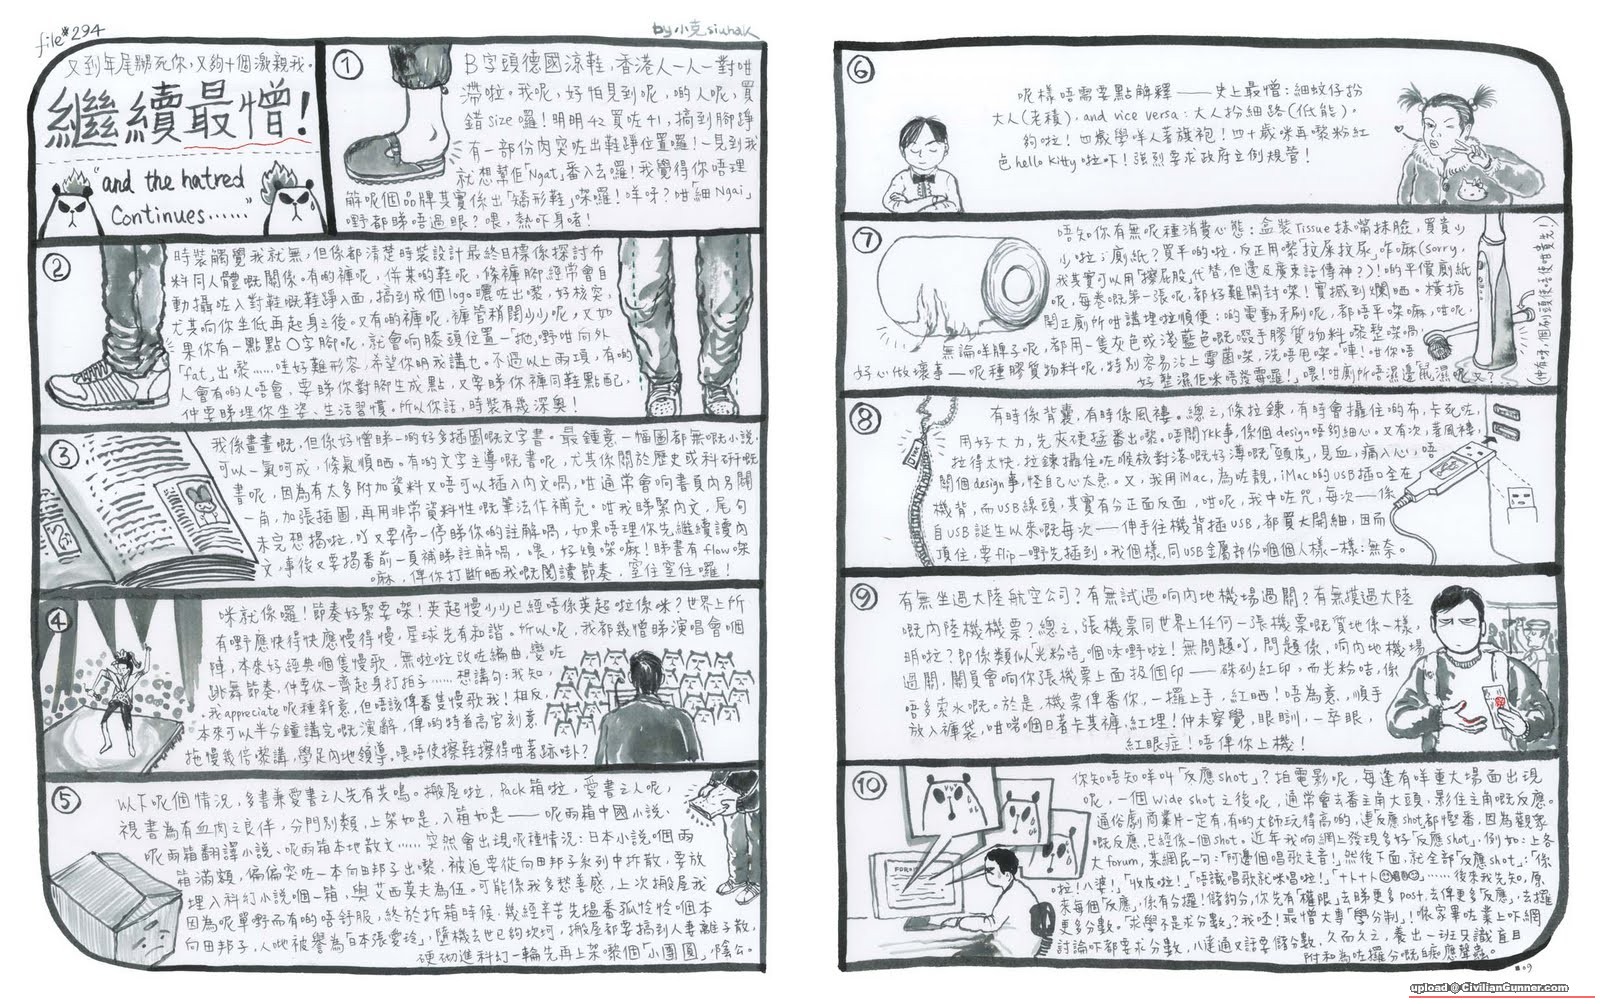 file#294
by 小克 siuhak
又到年尾關死你,又夠十個激親我。
繼續最憎!
"and the hatred
Continues……"
①
B字頭德國涼鞋,香港人一人一對咁
滯啦。我呢,好怕見到呢,啲人呢,買
錯size囉!明明42買咗41,搞到腳踭
有一部份肉突咗出鞋踭位置囉!一見到我
就想幫佢"Ngat"番入去囉!我覺得你唔理
解呢個品牌其實係出「矯形鞋」㗎囉!咩呀?咁「細Ngai」
嘢都睇唔過眼?喂,熱吓身啫!
②
時裝觸覺我就無,但係都清楚時裝設計最終目標係探討布
料同人體嘅關係。有啲褲呢,併某啲鞋呢,條褲腳經常會自
動攝咗入對鞋嘅鞋踭入面,搞到成個logo曬咗出嚟,好核突,
尤其向你坐低再起身之後。又有啲褲呢,褲管稍闊少少呢,又如
果你有一點點O字腳呢,就會响膝頭位置一拋嘢咁向外
「fat」出嚟……哇好難形容,希望你明我講乜。不過以上兩項,有啲
人會有啲人唔會,要睇你對腳生成點,又要睇你褲同鞋點配,
仲要睇埋你坐姿、生活習慣。所以你話,時裝有幾深奧!
③
我係畫畫嘅,但係好憎睇一啲好多插圖嘅文字書。最鍾意一幅圖都無嘅小說,
可以一氣呵成,條氣順晒。有啲文字主導嘅書呢,尤其係關於歷史或科研嘅
書呢,因為有太多附加資料又唔可以插入內文喎,咁通常會响書頁內另開
一角,加張插圖,再用非常資料性嘅筆法作補充。咁我睇緊內文,尾句
未完想揭啦,叮又要停一停睇你的註解喎,如果唔理你先繼續讀內
文,事後又要揭番前一頁補睇註解喎,喂,好煩㗎嘛!睇書有flow㗎
嘛,俾你打斷晒我嘅閱讀節奏,窒住窒住囉!
④
咪就係囉!節奏好緊要㗎!英超慢少少已經唔係英超啦係咪?世界上所
有嘢應快得快應慢得慢,星球先有和諧。所以呢,我都幾憎睇演唱會嗰
陣,本來好經典嗰隻慢歌,無啦啦改咗編曲,變咗
跳舞節奏,仲要你一齊起身打拍子……想講句:我知,
我appreciate呢種新意,但唔該俾番隻慢歌我!相反,
本來可以半分鐘講完嘅演辭,俾啲特首高官刻意
拖慢幾倍嚟講,學足內地領導,喂唔使擦鞋擦得咁著跡啩?
⑤
以下呢個情況,多書兼愛書之人先有共鳴。搬屋啦,Pack箱啦,愛書之人呢,
視書為有血肉之良伴,分門別類,上架如是,入箱如是——呢兩箱中國小說、
呢兩箱翻譯小說、呢兩箱本地散文……突然會出現呢種情況:日本小說嗰兩
箱滿額,偏偏突咗一本向田邦子出嚟,被迫要從向田邦子系列中拆散,要放
埋入科幻小說嗰一箱,與艾西莫夫為伍。可能係我多愁善感,上次搬屋我
因為呢單野而有啲唔舒服,終於拆箱時候,幾經辛苦先搵番孤怜怜嗰本
向田邦子,人哋被譽為「日本張愛玲」,墮機去世已夠坎坷,搬屋都要搞到人妻離子散,
硬砌進科幻一輪先再上架嚟個「小團圓」,陰公。
⑥
呢樣唔需要點解釋——史上最憎:細蚊仔扮
大人(老積),and vice versa:大人扮細路(低能)。
夠啦!四歲學咩人著旗袍!四十歲咪再嚟粉紅
色hello kitty啦吓!強烈要求政府立例規管!
⑦
唔知你有無呢種消費心態:盒裝Tissue抹嘴抹臉,買貴少
少啦;廁紙?買平啲啦,反正用嚟「拉屎拉尿」咋嘛(sorry,
我其實可以用「擦屁股」代替,但邊及廣東話傳神?)!啲平價廁紙
呢,每卷嘅第一張呢,都好難開封㗎!實搣到爛晒。橫掂
開正廁所咁講埋啦順便:啲電動牙刷呢,都唔平㗎嘛,咁呢,
無論咩牌子呢,都用一隻灰色或淺藍色嘅啜手膠質物料嚟整㗎喎
好心做壞事——呢種膠質物料呢,特別容易沾上霉菌㗎,洗唔甩㗎。「陣!咁你唔
好整濕佢咪唔發霉囉!」喂!咁廁所唔濕邊鼠濕呢又?
(仲有呀,個刷頭使唔使咁貴先!)
⑧
有時係背囊,有時係風褸。總之,條拉鍊,有時會攝住啲布,卡死咗,
用好大力,先夾硬掹番出嚟。唔關YKK事,係個design唔夠細心。又有次,著風褸,
拉得太快,拉鍊攝住咗喉核對落嘅好薄嘅「頸皮」,見血,痛入心,唔
關個design事,怪自己心太急。又,我用iMac,為咗靚,iMac啲USB插口全在
機背,而USB線頭,其實有分正面反面,咁呢,我中咗咒,每次——係
自USB誕生以來嘅每次——伸手往機背插USB,都買大開細,因而
頂住,要flip一嘢先插到。我個樣,同USB金屬部份嗰個人樣一樣:無奈。
⑨
有無坐過大陸航空公司?有無試過响內地機場過關?有無摸過大陸
嘅內陸機機票?總之,張機票同世界上任何一張機票嘅質地係一樣,
明啦?即係類似「光粉咭」嗰咪野啦!無問題吖,問題係,响內地機場
過關,關員會响你張機票上面扱個印——硃砂紅印,而光粉咭,係
唔多索水嘅。於是,機票俾番你,一攞上手,紅晒!唔為意,順手
放入褲袋,咁啱嗰日著卡其褲,紅埋!仲未察覺,眼瞓,一捽眼,
紅眼症!唔俾你上機!
⑩
你知唔知咩叫「反應shot」?拍電影呢,每逢有咩重大場面出現
呢,一個wide shot之後呢,通常會去番主角大頭,影住主角嘅反應。
通俗劇商業片一定有,有啲大師玩得高啲,連反應shot都慳番,因為觀眾
嘅反應,已經係個shot。近年我响網上發現多好多「反應shot」,例如:上各
大forum,某網民一句:「阿邊個唱歌走音!」然後下面,就全部「反應shot」:「係
啦!八婆!」、「收皮啦!」、「唔識唱歌就咪唱啦!」、「十卜十卜……」……後來我先知,原
來每個「反應」,係有分攞!儲夠分,你先有「權限」去睇更多post,去俾更多「反應」,去攞
更多分數。「求學不是求分數」?我丕!最憎大專「學分制」!喺家畢咗業上吓網
討論吓都要求分數,八達通又話要儲分數,久而久之,養出一班只識盲目
附和為咗攞分嘅自痴應聲蟲。
FORUM
upload @ CivilianGunner.com